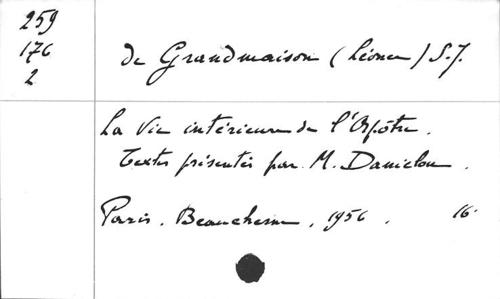 259
176
2
de Grandmaison (Léonce) S.J.
La Vie intérieure de l'Apôtre.
Textes présentés par M. Danielou.
Paris. Beauchesne, 1956. 16°